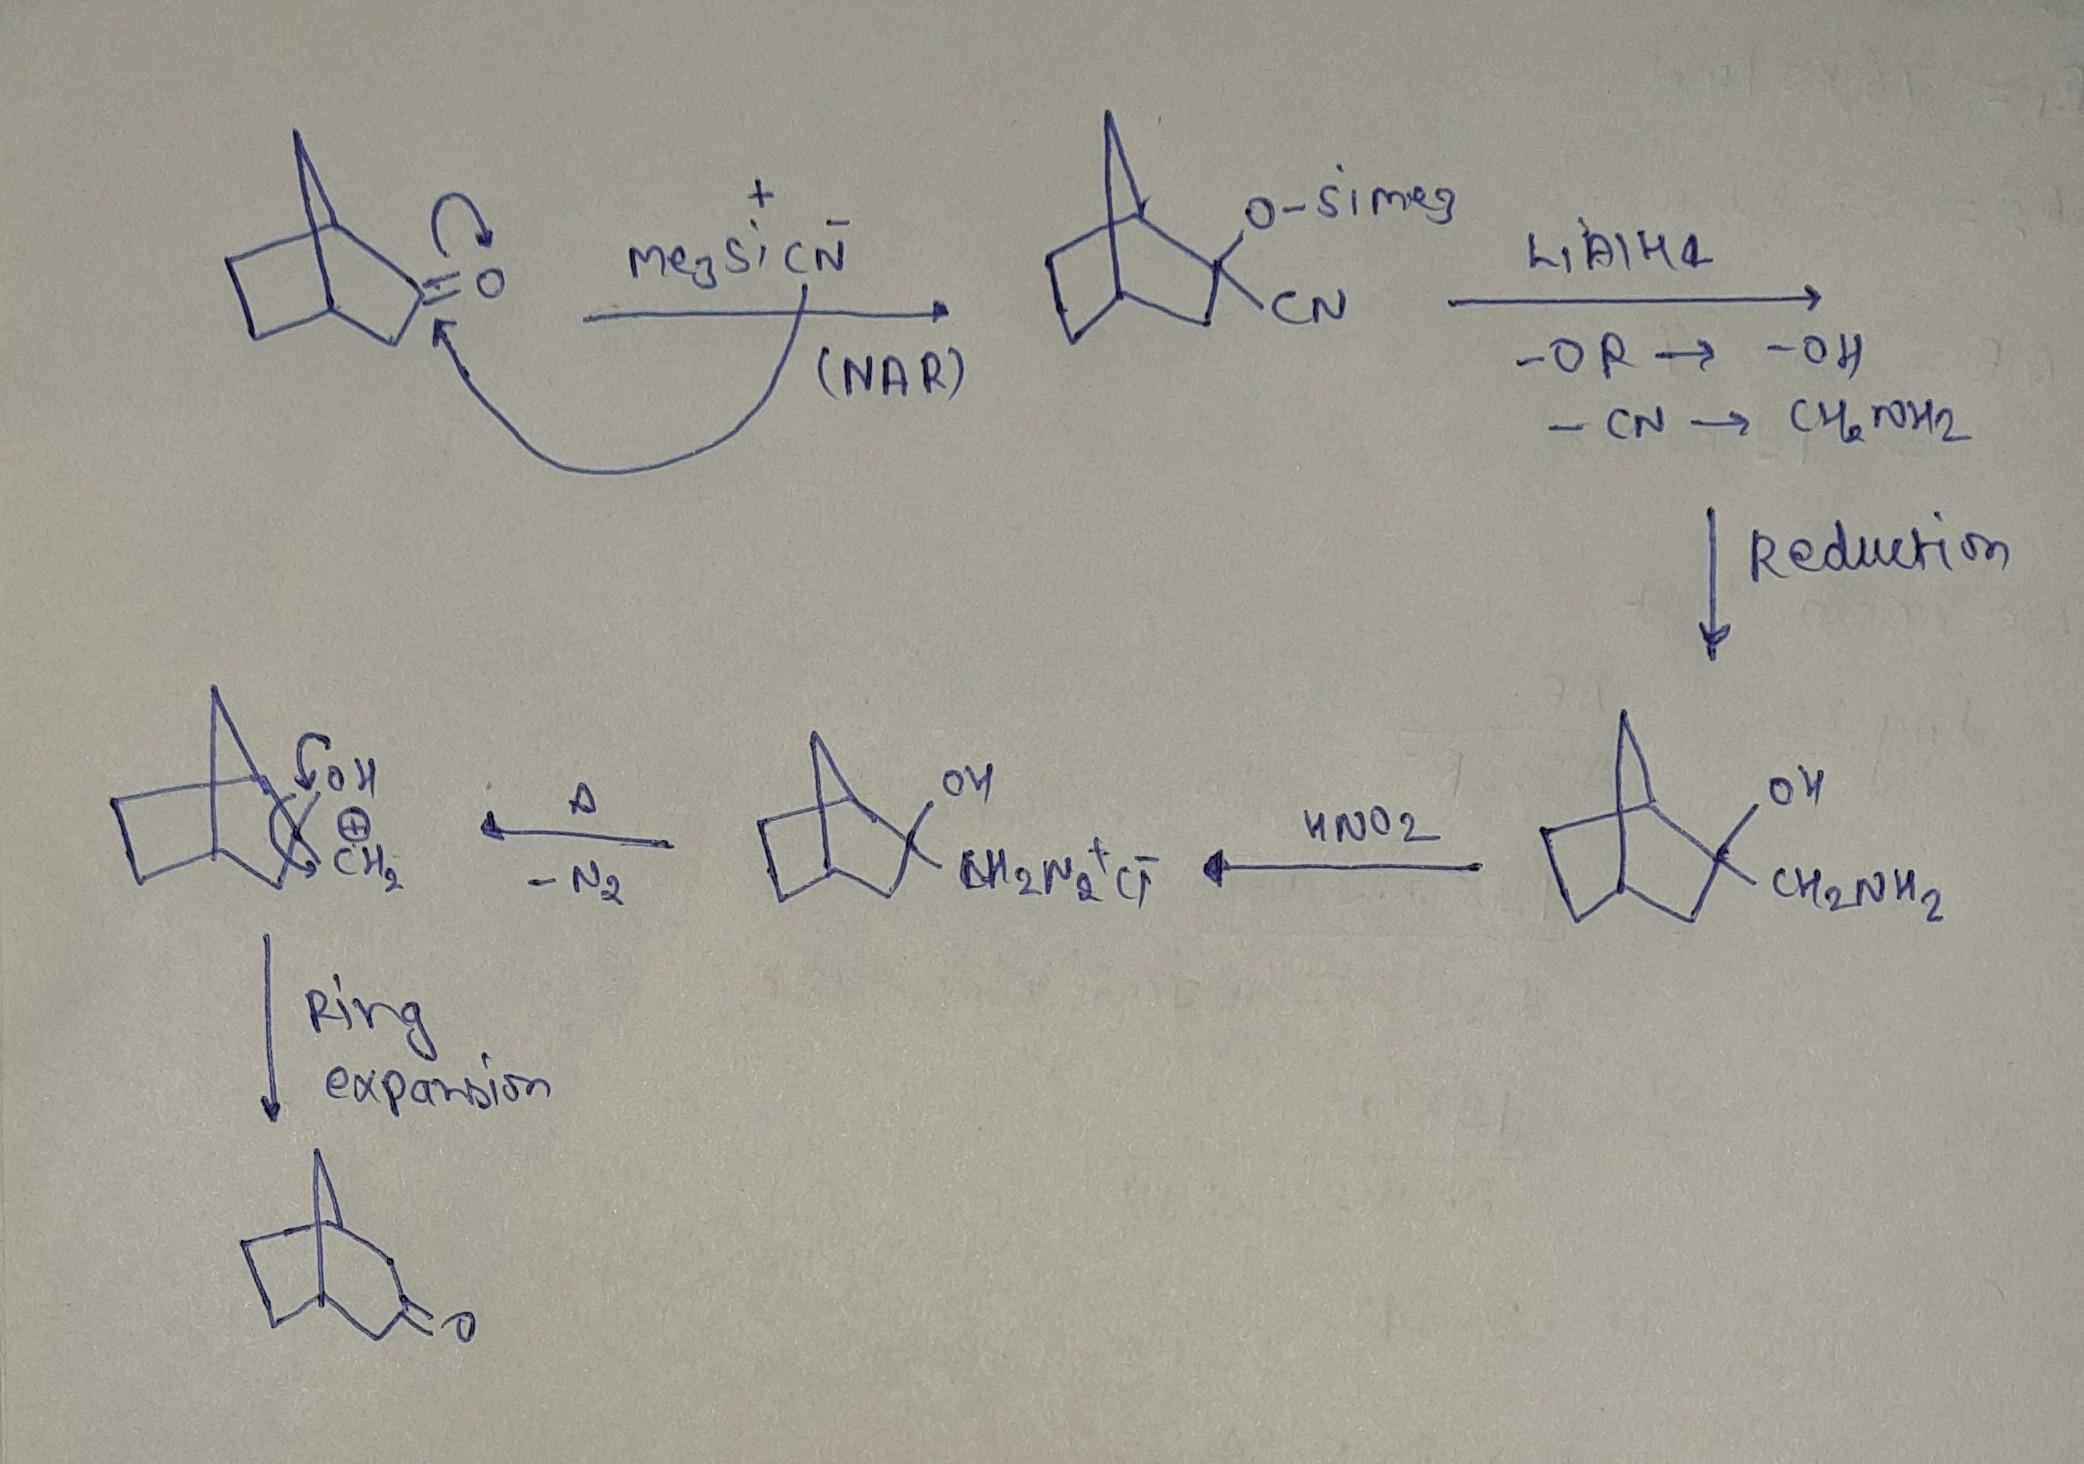 O
Me3Si+ CN-
(NAR)
O-Sime3
CN
LiAlH4
-OR → -OH
- CN → CH2NH2
Reduction
OH
CH2NH2
HNO2
OH
CH2N2+Cl-
Δ
- N2
OH
⊕
CH2
Ring
expansion
O